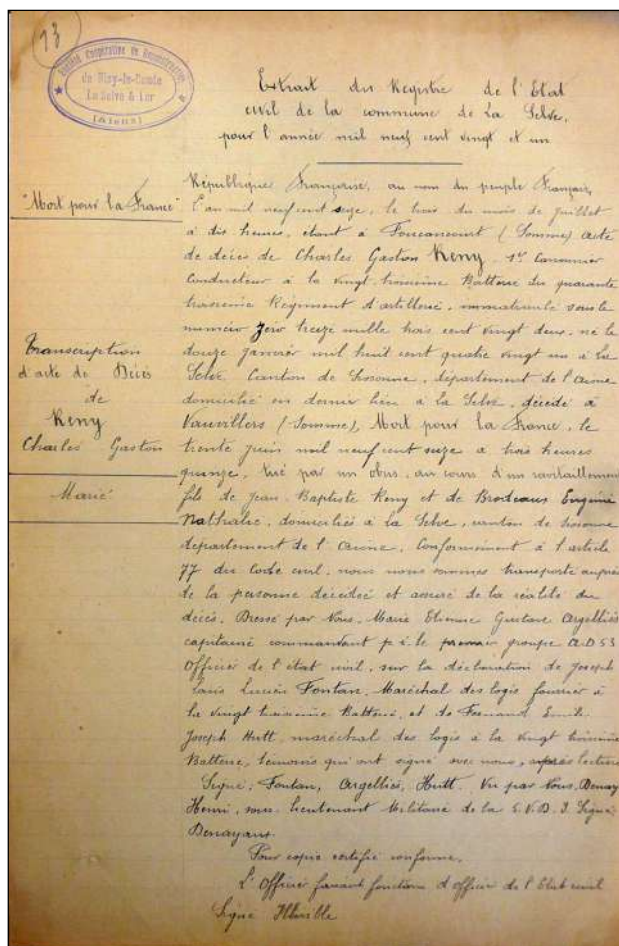 13
Société Coopérative de Reconstruction
de Nizy-le-Comte
La Selve & Lor
(Aisne)
Extrait du Registre de l'Etat
civil de la commune de La Selve,
pour l'année mil neuf cent vingt et un
"Mort pour la France"
Transcription
d'acte de Décès
de
Reny
Charles Gaston
Marié
République Française, au nom du peuple Français,
L'an mil neuf cent seize, le trois du mois de juillet
à dix heures, étant à Foucaucourt (Somme) acte
de décès de Charles Gaston Reny, 1er Canonnier
Conducteur à la vingt troisième Batterie du quarante
troisième Régiment d'artillerie, immatriculé sous le
numéro zéro treize mille trois cent vingt deux, né le
douze janvier mil huit cent quatre vingt un à la
Selve Canton de Sissonne, département de l'Aisne
domicilié en dernier lieu à la Selve, décédé à
Vauvillers (Somme), Mort pour la France, le
trente juin mil neuf cent seize à trois heures
quinze, tué par un obus, au cours d'un ravitaillement
fils de Jean-Baptiste Reny et de Brodeaux Eugénie
Nathalie, domiciliés à la Selve, canton de Sissonne
département de l'Aisne, Conformément à l'article
77 du Code civil, nous nous sommes transporté auprès
de la personne décédée et assuré de la réalité du
décès. Dressé par Nous, Marie Etienne Gustave Argelliès
capitaine commandant p. i. le premier groupe A.D 53
Officier de l'état civil, sur la déclaration de Joseph
Louis Lucien Fontan, Maréchal des logis fourrier à
la vingt troisième Batterie, et de Fernand Emile
Joseph Hutt, maréchal des logis à la vingt troisième
Batterie, témoins qui ont signé avec nous, après lecture
Signé: Fontan, Argelliès, Hutt. Vu par Nous,
Henri, sous-lieutenant Militaire de la Signé:
Denayans.
Pour copie certifié conforme,
L'Officier faisant fonctions d'Officier de l'Etat civil
Signé